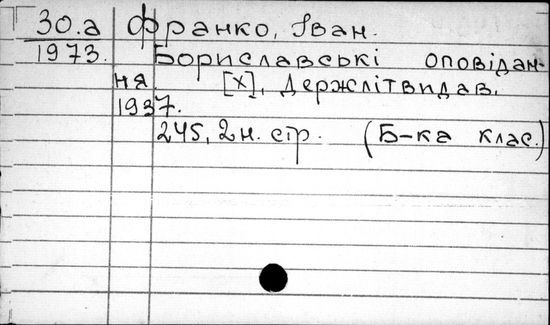 30.а Франко, Іван.
1973. Бориславські оповідан-
ня [Х], Держлітвидав,
1937.
245, 2 н. стр. (Б-ка клас.)